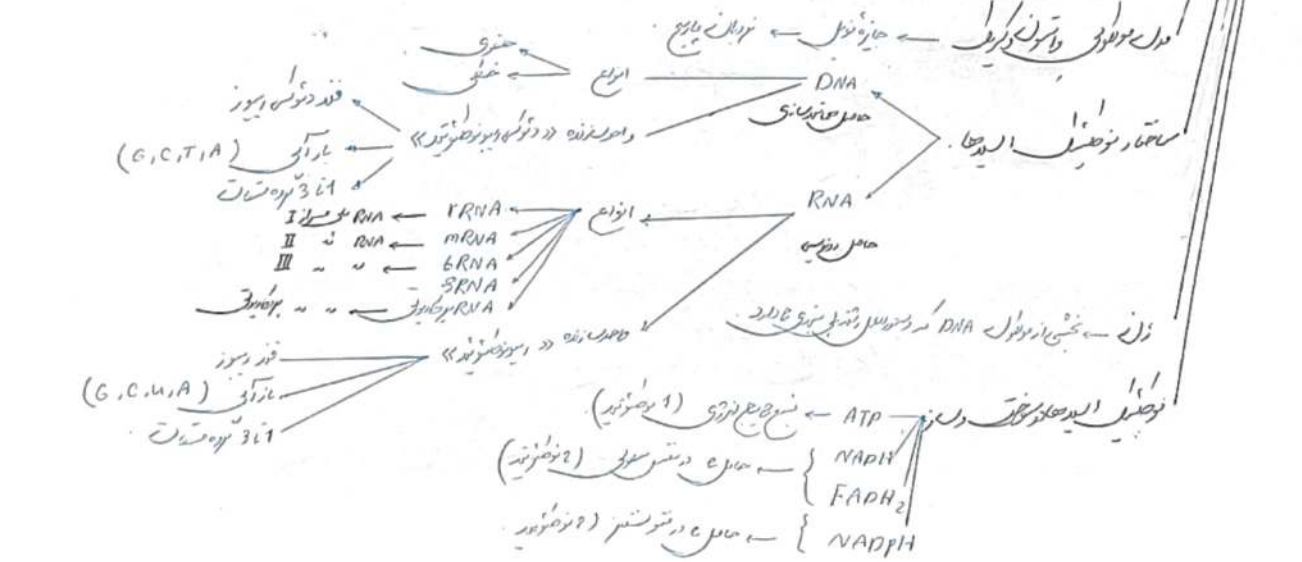 مدل مولکولی واتسون و کریک ← جایزه نوبل ← نردبان مارپیچ
ساختار نوکلئیک اسیدها
DNA
حامل همانندسازی
انواع
خطی
واحد سازنده «دئوکسی ریبونوکلئوتید»
قند دئوکسی ریبوز
باز آلی (G,C,T,A)
1 تا 3 گروه فسفات
RNA
حاصل رونویسی
انواع
rRNA ← RNA پلی مراز I
mRNA ← RNA " II
tRNA ← " " III
RNA پروکاریوتی ← " " پروکاریوتی
واحد سازنده «ریبونوکلئوتید»
قند ریبوز
باز آلی (G,C,U,A)
1 تا 3 گروه فسفات
ژن ← بخشی از مولکول DNA که
نوکلئیک اسیدها و سوخت و ساز
ATP ← منبع رایج انرژی (1 نوکلئوتید)
NADH
FADH2
} ← حامل e در تنفس سلولی (2 نوکلئوتید)
NADPH } ← حامل e در فتوسنتز (2 نوکلئوتید)